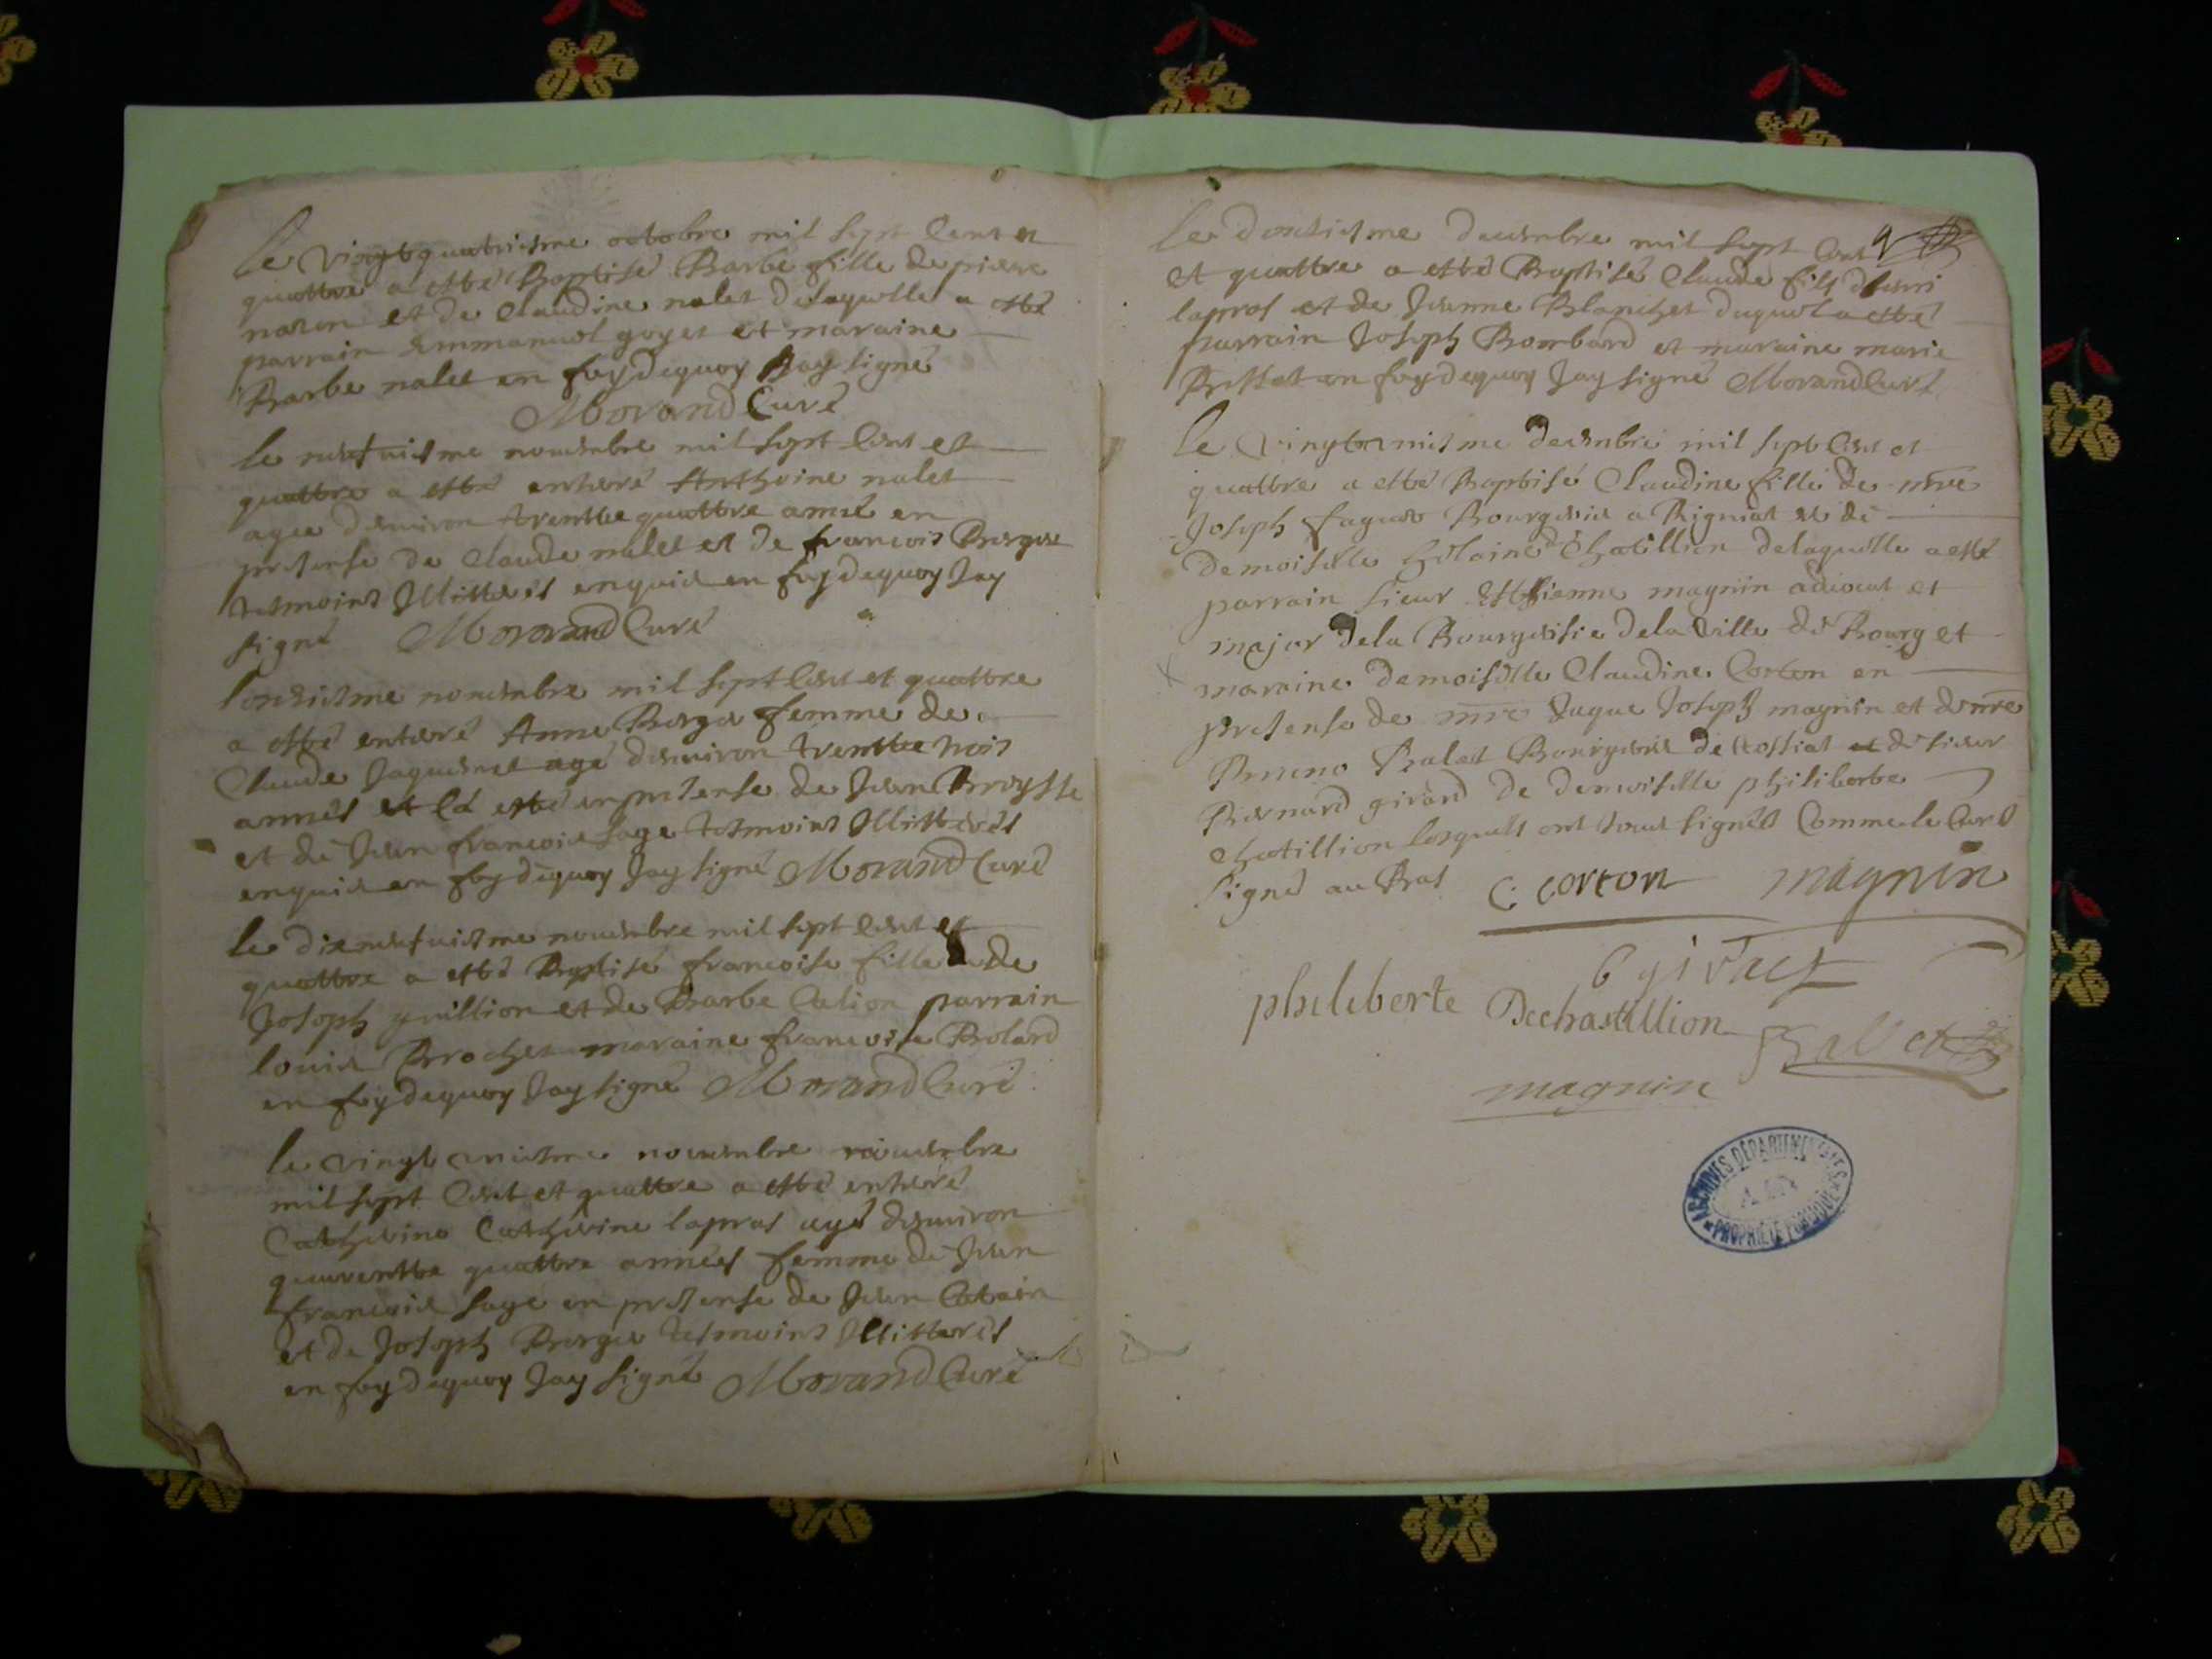 Le vingtquatriesme octobre mil sept Cent et
quattre a esté Baptisé Barbe fille de pierre
et de Claudine nalet delaquelle a esté
parrain Emmanuel goyet et maraine
Barbe nalet en foy dequoy Jay signé
Morand Curé
le neufuiesme nouembre mil sept Cent et
quattre a esté enterré Anthoine nalet
agee denuiron trentte quattre anneé en
presense de Claude nalet et de francois Borges
tesmoins Illitterés enquis en foy dequoy Jay
signé Morand Curé
l'onziesme nouembre mil sept Cent et quattre
a esté enterré Anne Borges femme de
Claude Jaquemet agé denuiron trentte trois
années et la esté en presense de Jean Broysse
et de Jean francois sage tesmoins Illitterés
enquis en foy dequoy Jay signé Morand Curé
le dixneufuiesme nouembre mil sept Cent et
quattre a esté Baptisé francoise fille de
Joseph guillion et de Barbe Calion parrain
louis Brochet maraine francoise Bolard
en foy dequoy Jay signé Morand Curé
le vingt uniesme nouembre nouembre
mil sept Cent et quattre a esté enterré
Catherine Catherine lapras agé denuiron
quarentte quattre années femme de Jean
francois sage en presense de Jean Catain
et de Joseph Borges tesmoins Illitterés
en foy dequoy Jay signé Morand Curé
le douziesme decembre mil sept Cent
et quattre a esté Baptisé Claude fils
lapras et de Jeanne Blanchet duquel a esté
parrain Joseph Bombard et maraine marie
en foy dequoy Jay signé Morand Curé
le vingtunuiesme decembre mil sept Cent et
quattre a esté Baptisé Claudine fille de mre
Joseph faguet Bourgeois a Rigniat et de
demoiselle hélaine de Chatillion delaquelle a esté
parrain sieur Esthienne magnin aduocat et
major dela Bourgeoisie dela ville de Bourg et
maraine demoiselle Claudine Corton en
presense de mre Juque Joseph magnin et de mre
Bruno Balet Bourgeois de tossiat et de sieur
Biernard girard de demoiselle philiberte
Chatillion lesquels ont tous signés Comme le Curé
signé au Bas C: corton magnin
b girard
philiberte Dechastillion
Ballet
magnin
ARCHIVES DEPARTEMENTALES
AIN
PROPRIETE PUBLIQUE